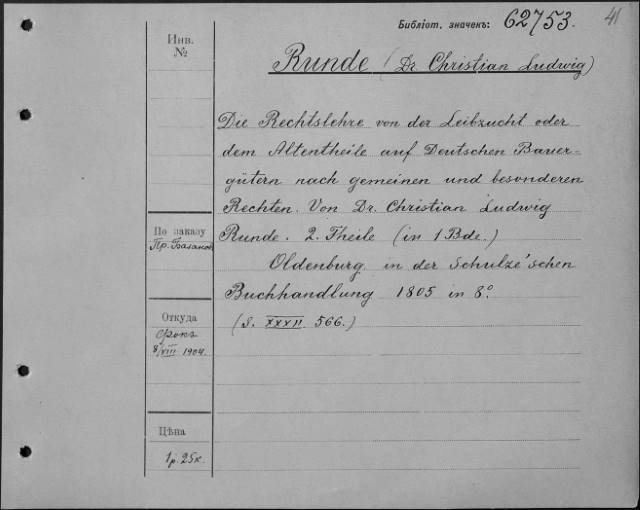 Библіот. значекъ: 62753.
41
Инв.
№
Runde (Dr. Christian Ludwig)
Die Rechtslehre von der Leibzucht oder
dem Altentheile auf Deutschen Bauer-
gütern nach gemeinen und besonderen
Rechten. Von Dr. Christian Ludwig
Runde. 2. Theile (in 1 Bde.)
Oldenburg in der Schulze'schen
Buchhandlung 1805 in 8º.
(S. XXXII. 566.)
По заказу
Пр. Базанов
Откуда
Фокъ
8/VIII 1904.
Цѣна
1 р. 25 к.